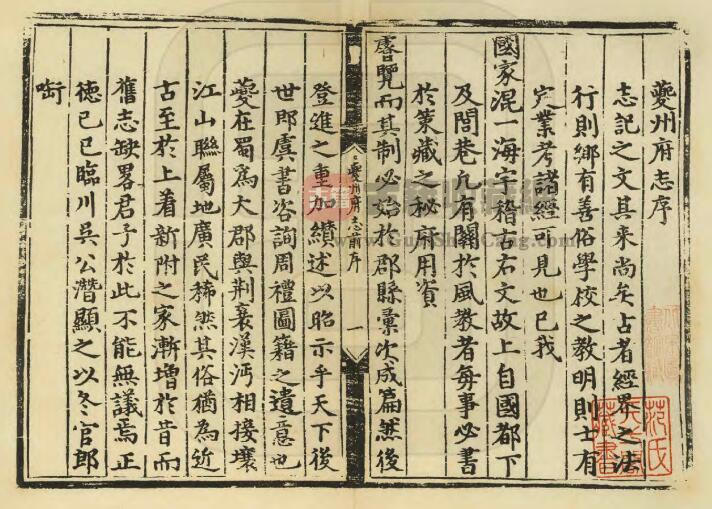 夔州府志序
志記之文其来尚矣古者經界之法
行則鄉有善俗學校之教明則士有
定業考諸經可見也已我
國家混一海宇稽古右文故上自國都下
及閭巷凢有關於風教者每事必書
於策藏之秘府用資
睿覽而其制必始於郡縣彙次成篇然後
夔州府志前序
一
登進之重加纉述以昭示乎天下後
世即虞書咨詢周禮圖籍之遺意也
夔在蜀爲大郡與荆襄漢沔相接壤
江山聯屬地廣民稀然其俗猶為近
古至於上着新附之家漸增於昔而
舊志缺畧君子於此不能無議焉正
德己巳臨川吳公潛顯之以冬官郎
范氏
藏書